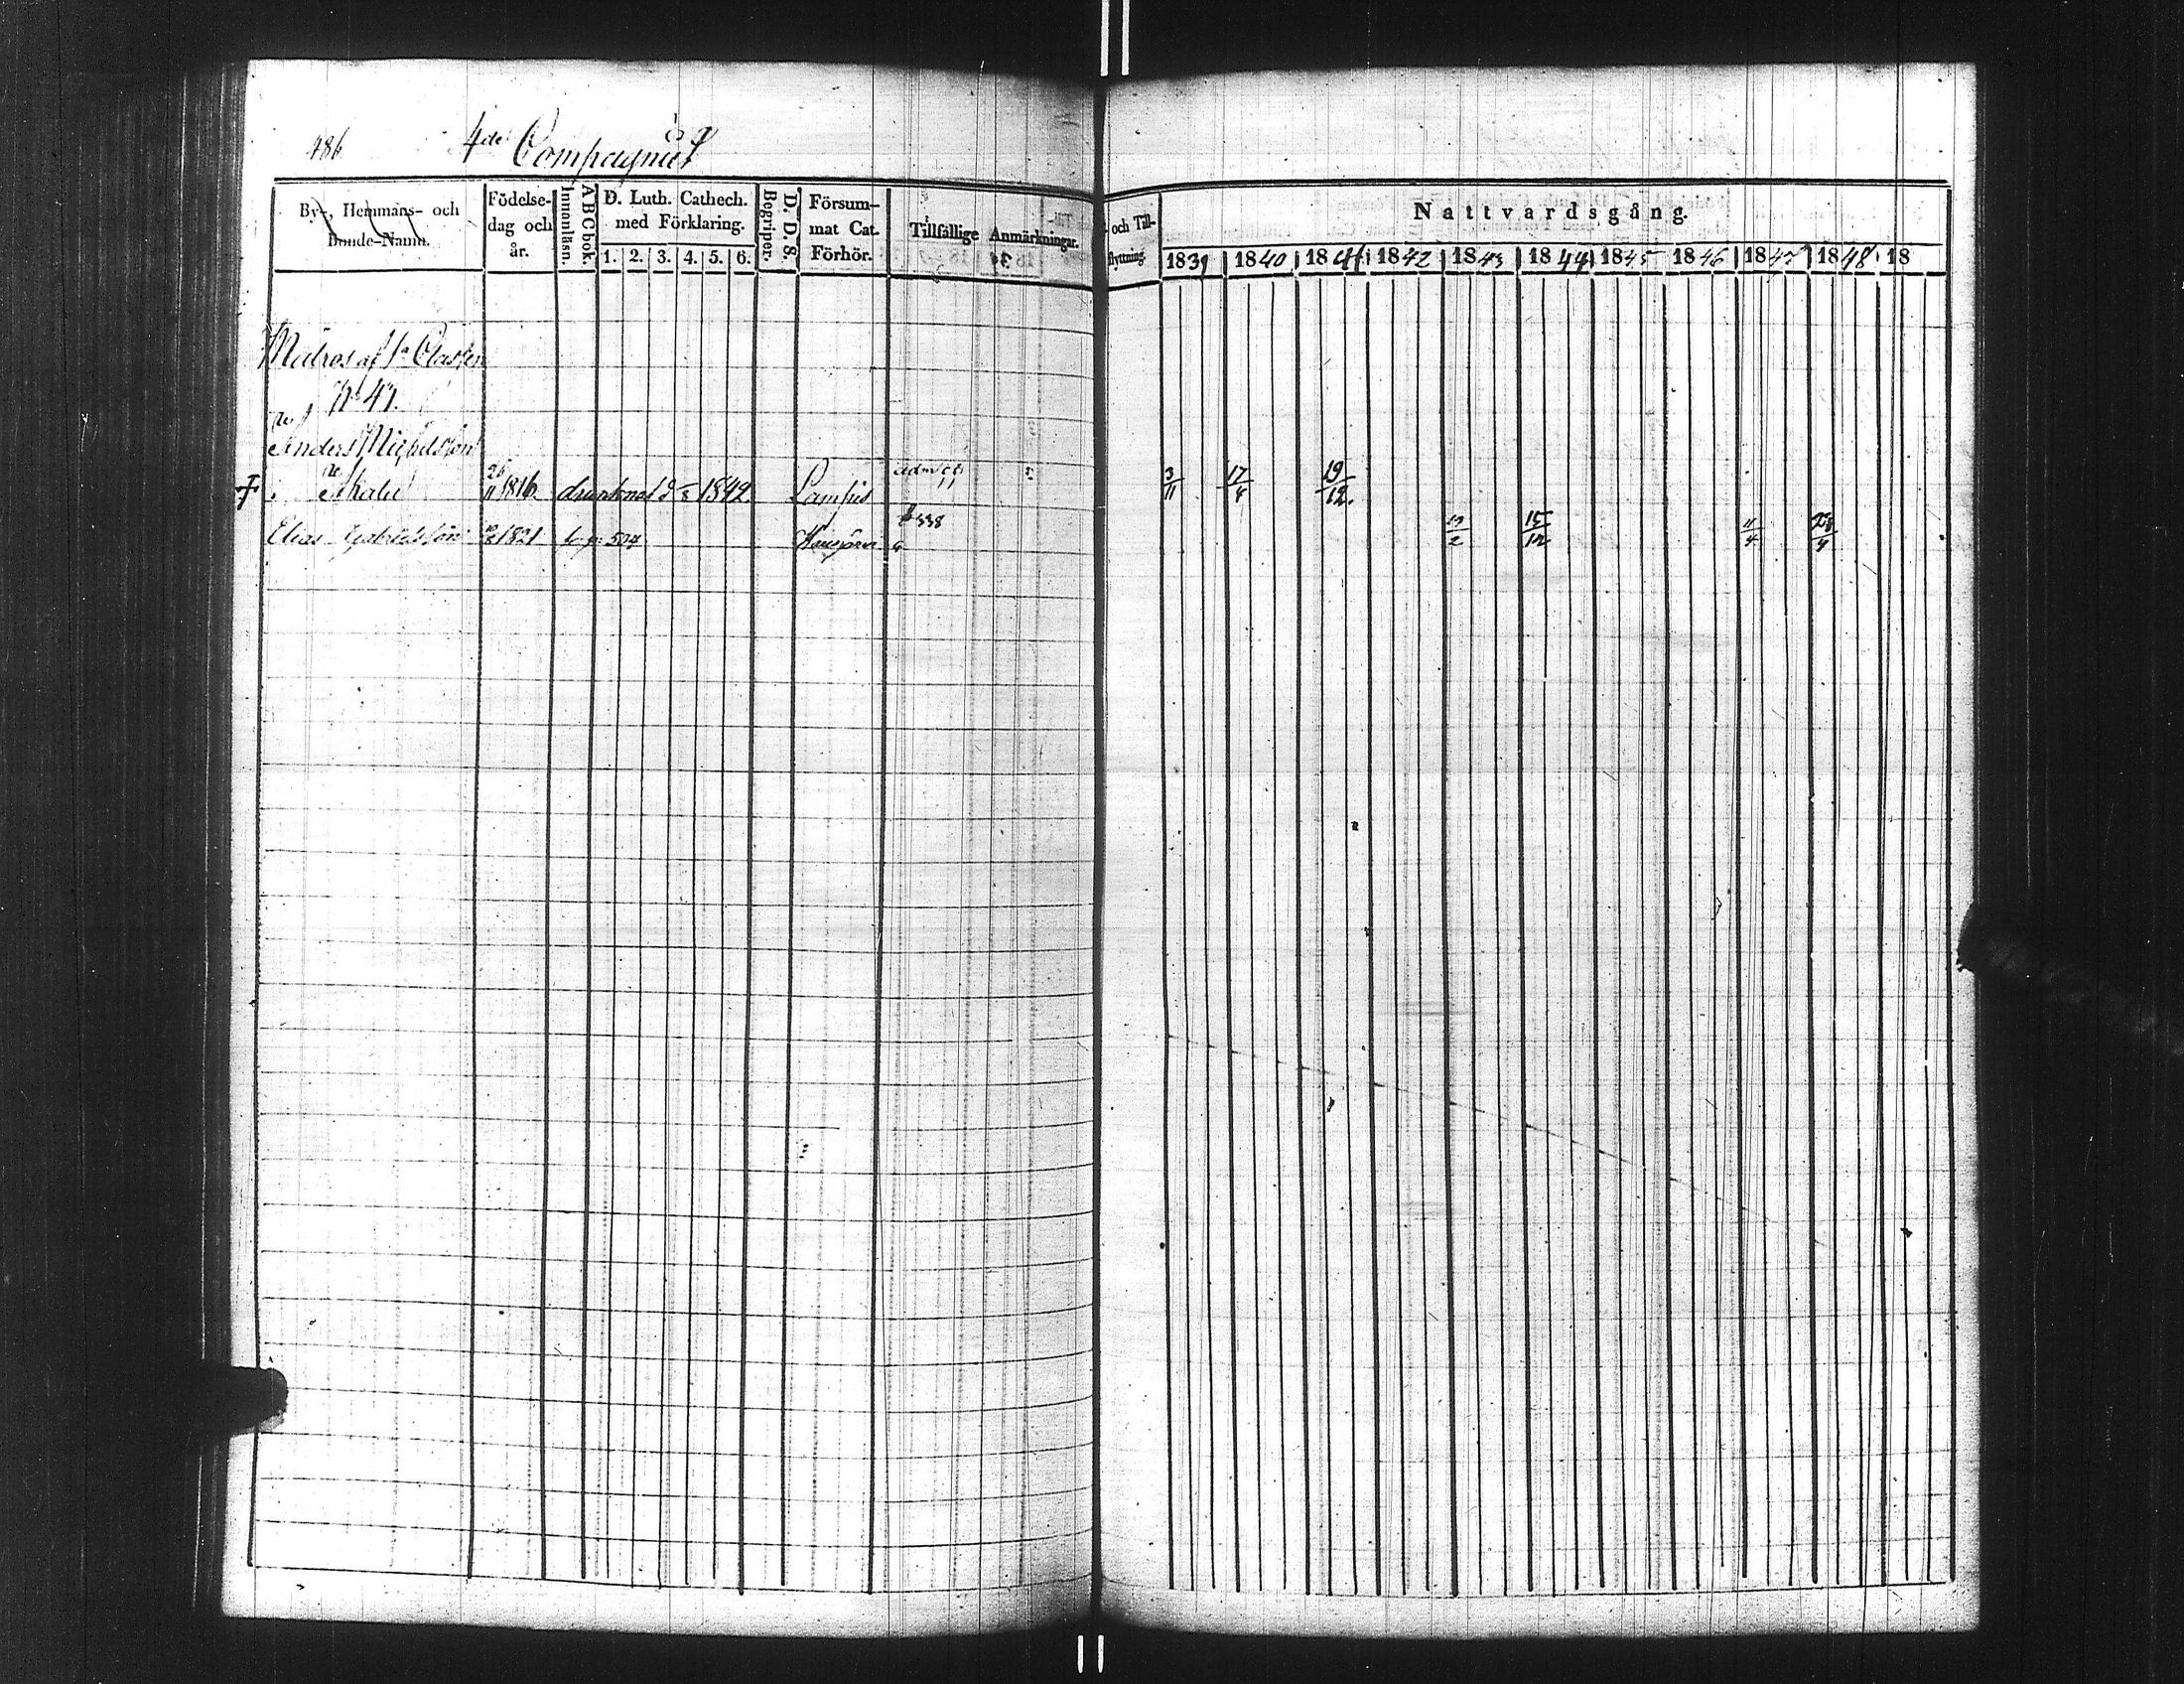 486 4de Compagniet
By-, Hemmans- och Bonde-Namn.
Födelse-dag och år.
ABC bok. Innonläsn.
D. Luth. Cathech. med Förklaring.
1. 2. 3. 4. 5. 6.
D. D. S. Begriper.
Försum-mat Cat. Förhör.
Tillfällige Anmärkningar.
och Till-
flyttning.
Nattvardsgång.
1839 1840 1841 1842 1843 1844 1845 1846 1847 1848 18
Matros af 1a Classen
No 47.
Anders Michelsson
26/11 1816 drunknad 1842 Lampis 3/11 17/4 19/12.
Elias Gabrielsson 1821 504 338 15/12 11/4 28/4